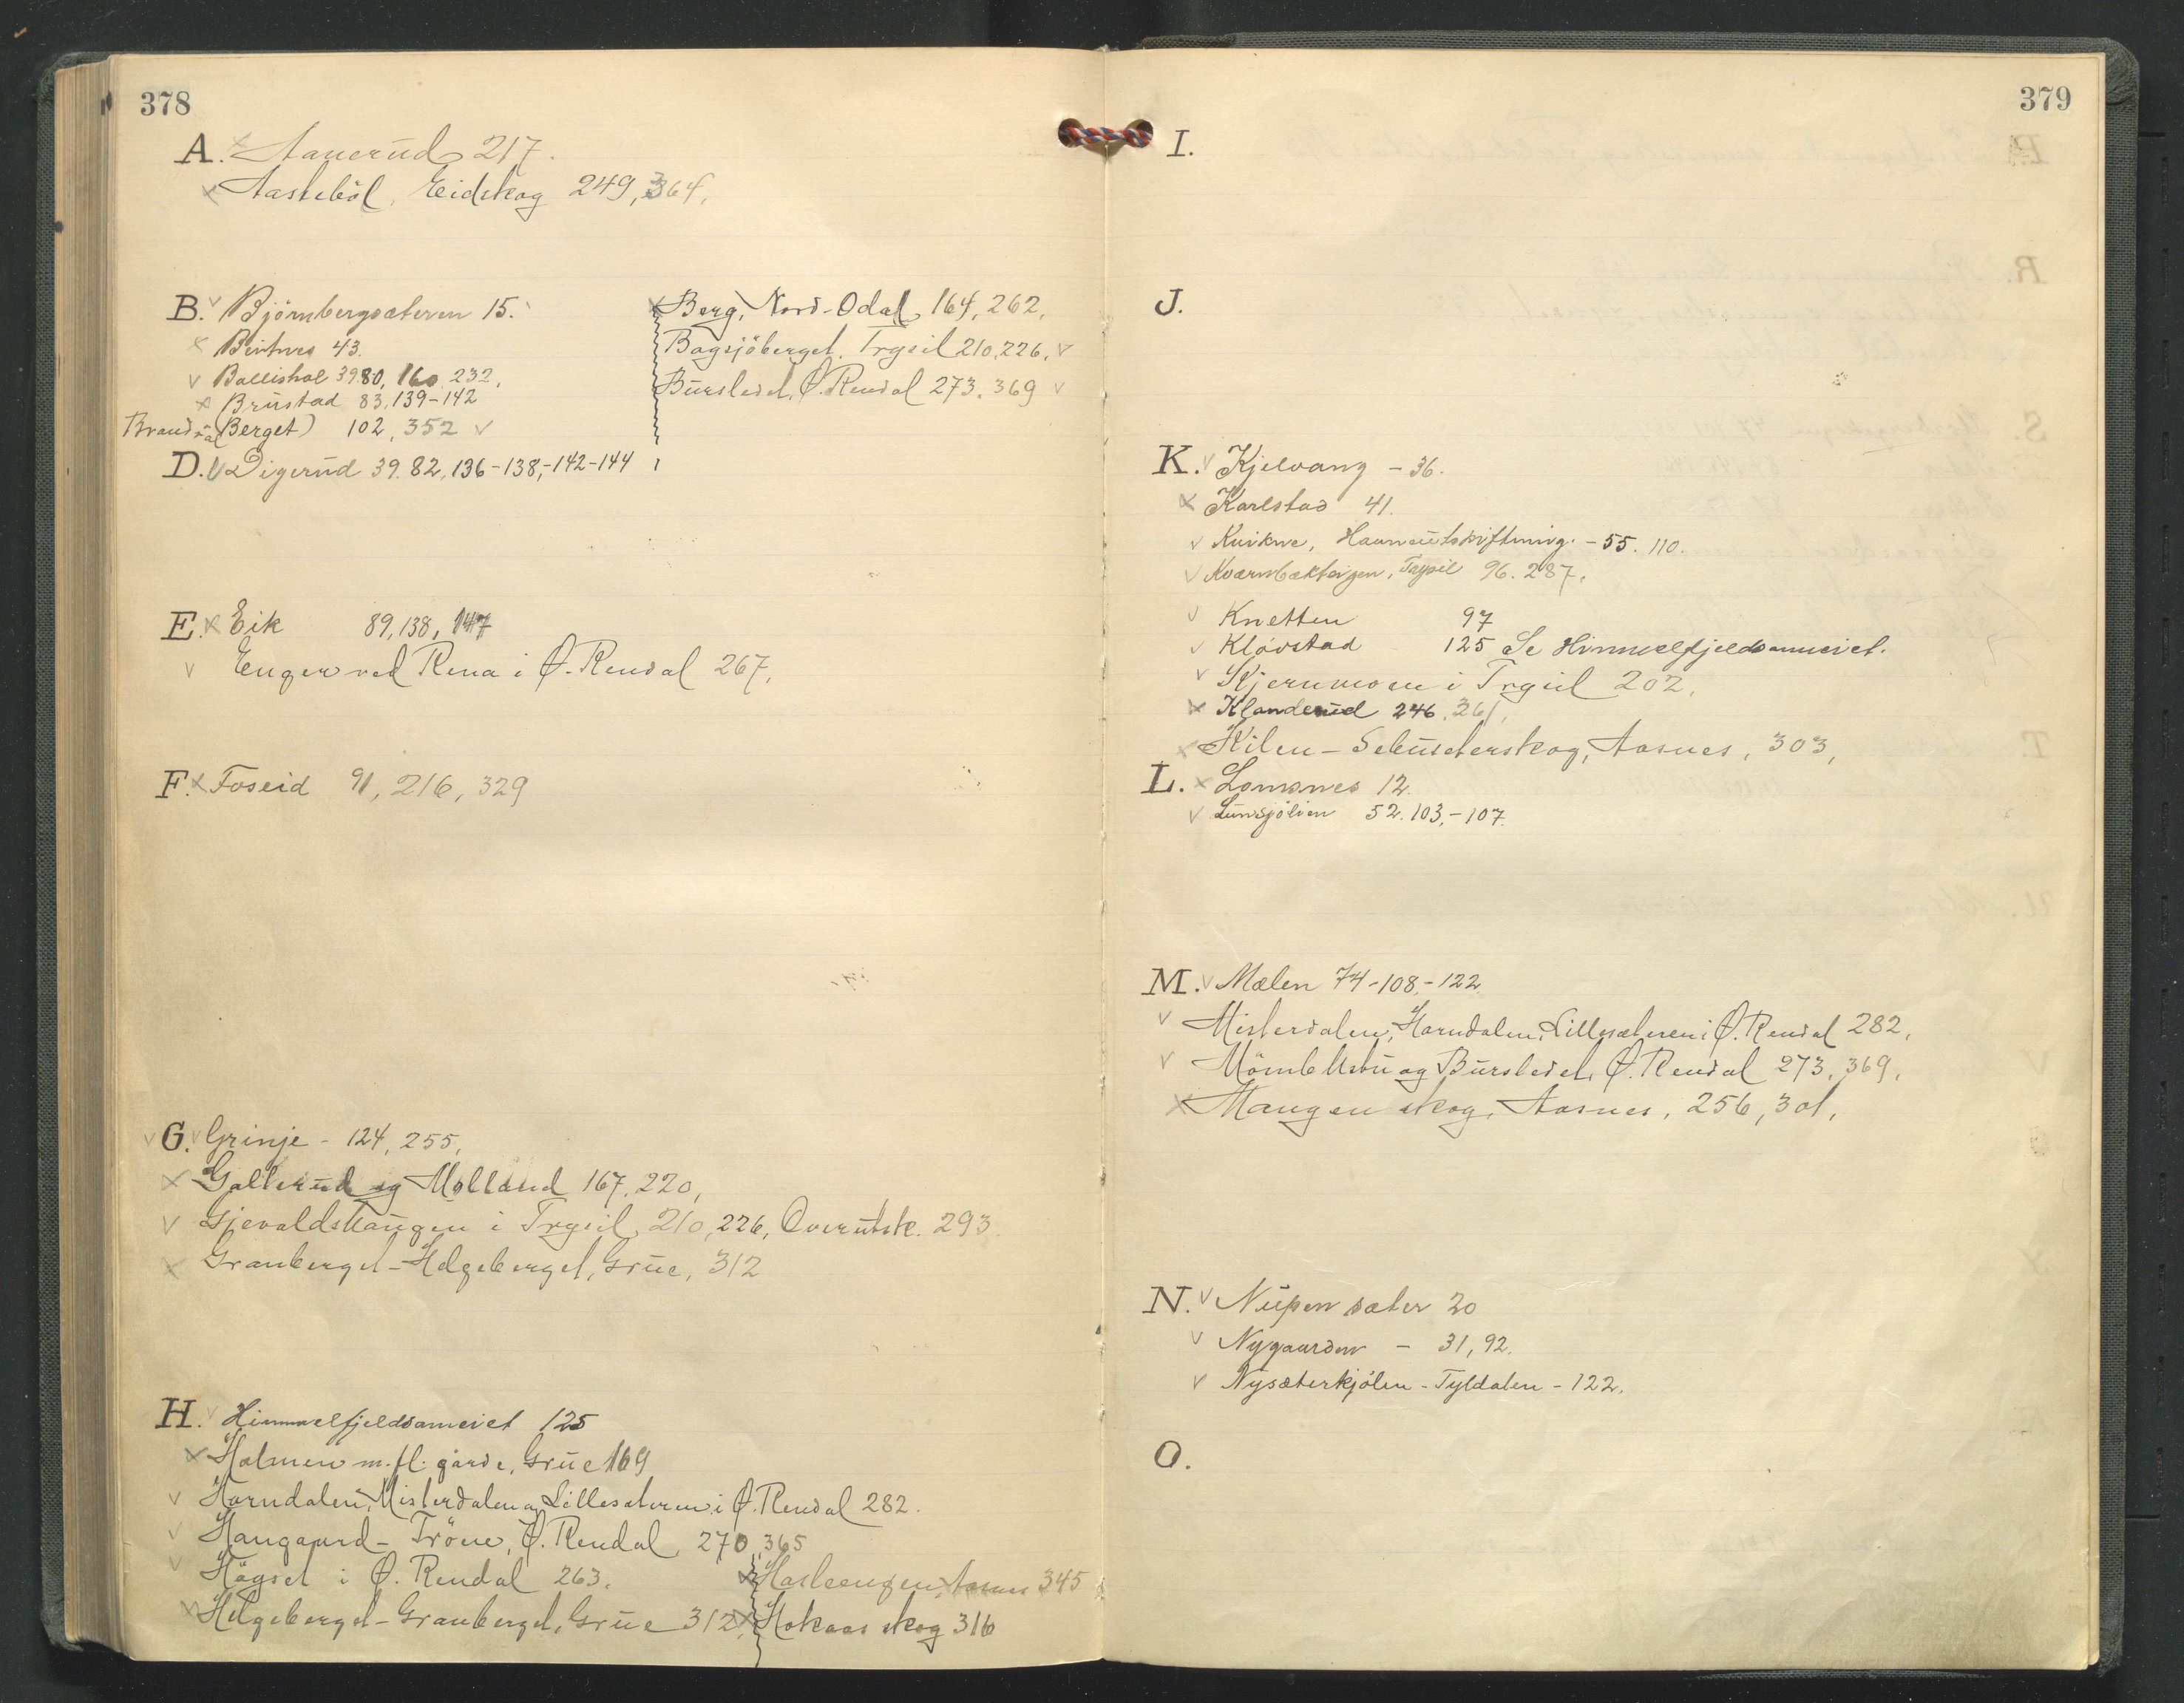 378
A. × Aanerud 217.
× Aastebøl, Eidskog 249, 364,
B. v Bjørnbergsæteren 15.
× Bentnes 43.
v Ballishol 39.80, 160, 232,
× Brustad 83, 139-142
Brandval (Berget) 102, 352 v
× Berg, Nord-Odal 164, 262,
Bagsjöberget, Trysil 210, 226, v
Bursledet, Ø. Rendal 273, 369 v
D. v Digerud 39. 82, 136-138,-142-144
E. × Eik 89, 138, 147
v Enger ved Rena i Ø. Rendal 267,
F. × Foseid 91, 216, 329
v G. v Grinje - 124, 255,
× Galterud og Molland 167, 220,
v Gjevaldshaugen i Trysil, 210, 226, Overutsk. 293
× Granberget-Helgeberget, Grue, 312
H. v Himmelfjeldsameiet 125
× Holmen m.fl. gårde, Grue 169
v Harndalen, Misterdalen og Lillesæteren i Ø. Rendal 282.
v Haugaard-Tröen, Ø. Rendal, 270, 365
v Högset i Ø. Rendal 263.
× Hasleengen, Aasnes 345
× Helgeberget-Granberget, Grue 312,
× Hokaas skog 316
379
I.
J.
K. v Kjelvang - 36.
× Karlstad 41.
v Kvikne, Havneutskiftning. - 55. 110.
v Kværnbækteigen, Trysil 96. 287,
v Knetten 97
v Kløvstad 125 Se Himmelfjeldsameiet.
v Kjernmoen i Trysil 202,
× Klanderud 246, 261,
× Kilen - Sebuseterskog, Aasnes, 303,
L. × Lomsnes 12.
v Lunsjølien 52. 103,-107.
M. v Mælen 74-108,-122.
v Misterdalen, Harndalen, Lillesæteren i Ø. Rendal 282,
v Mömbekstu og Bursledet, Ø. Rendal 273, 369,
× Mangen skog, Aasnes, 256, 301,
N. v Nupen sæter 20
v Nygaarden - 31, 92.
v Nysæterkjølen - Tyldalen - 122.
O.